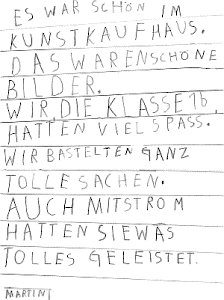 ES WAR SCHÖN IM
KUNSTKAUFHAUS.
DAS WARENSCHÖNE
BILDER.
WIR, DIE KLASSE 1b,
HATTEN VIEL SPASS.
WIR BASTELTEN GANZ
TOLLE SACHEN.
AUCH MITSTROM
HATTEN SIEWAS
TOLLES GELEISTET.
MARTIN